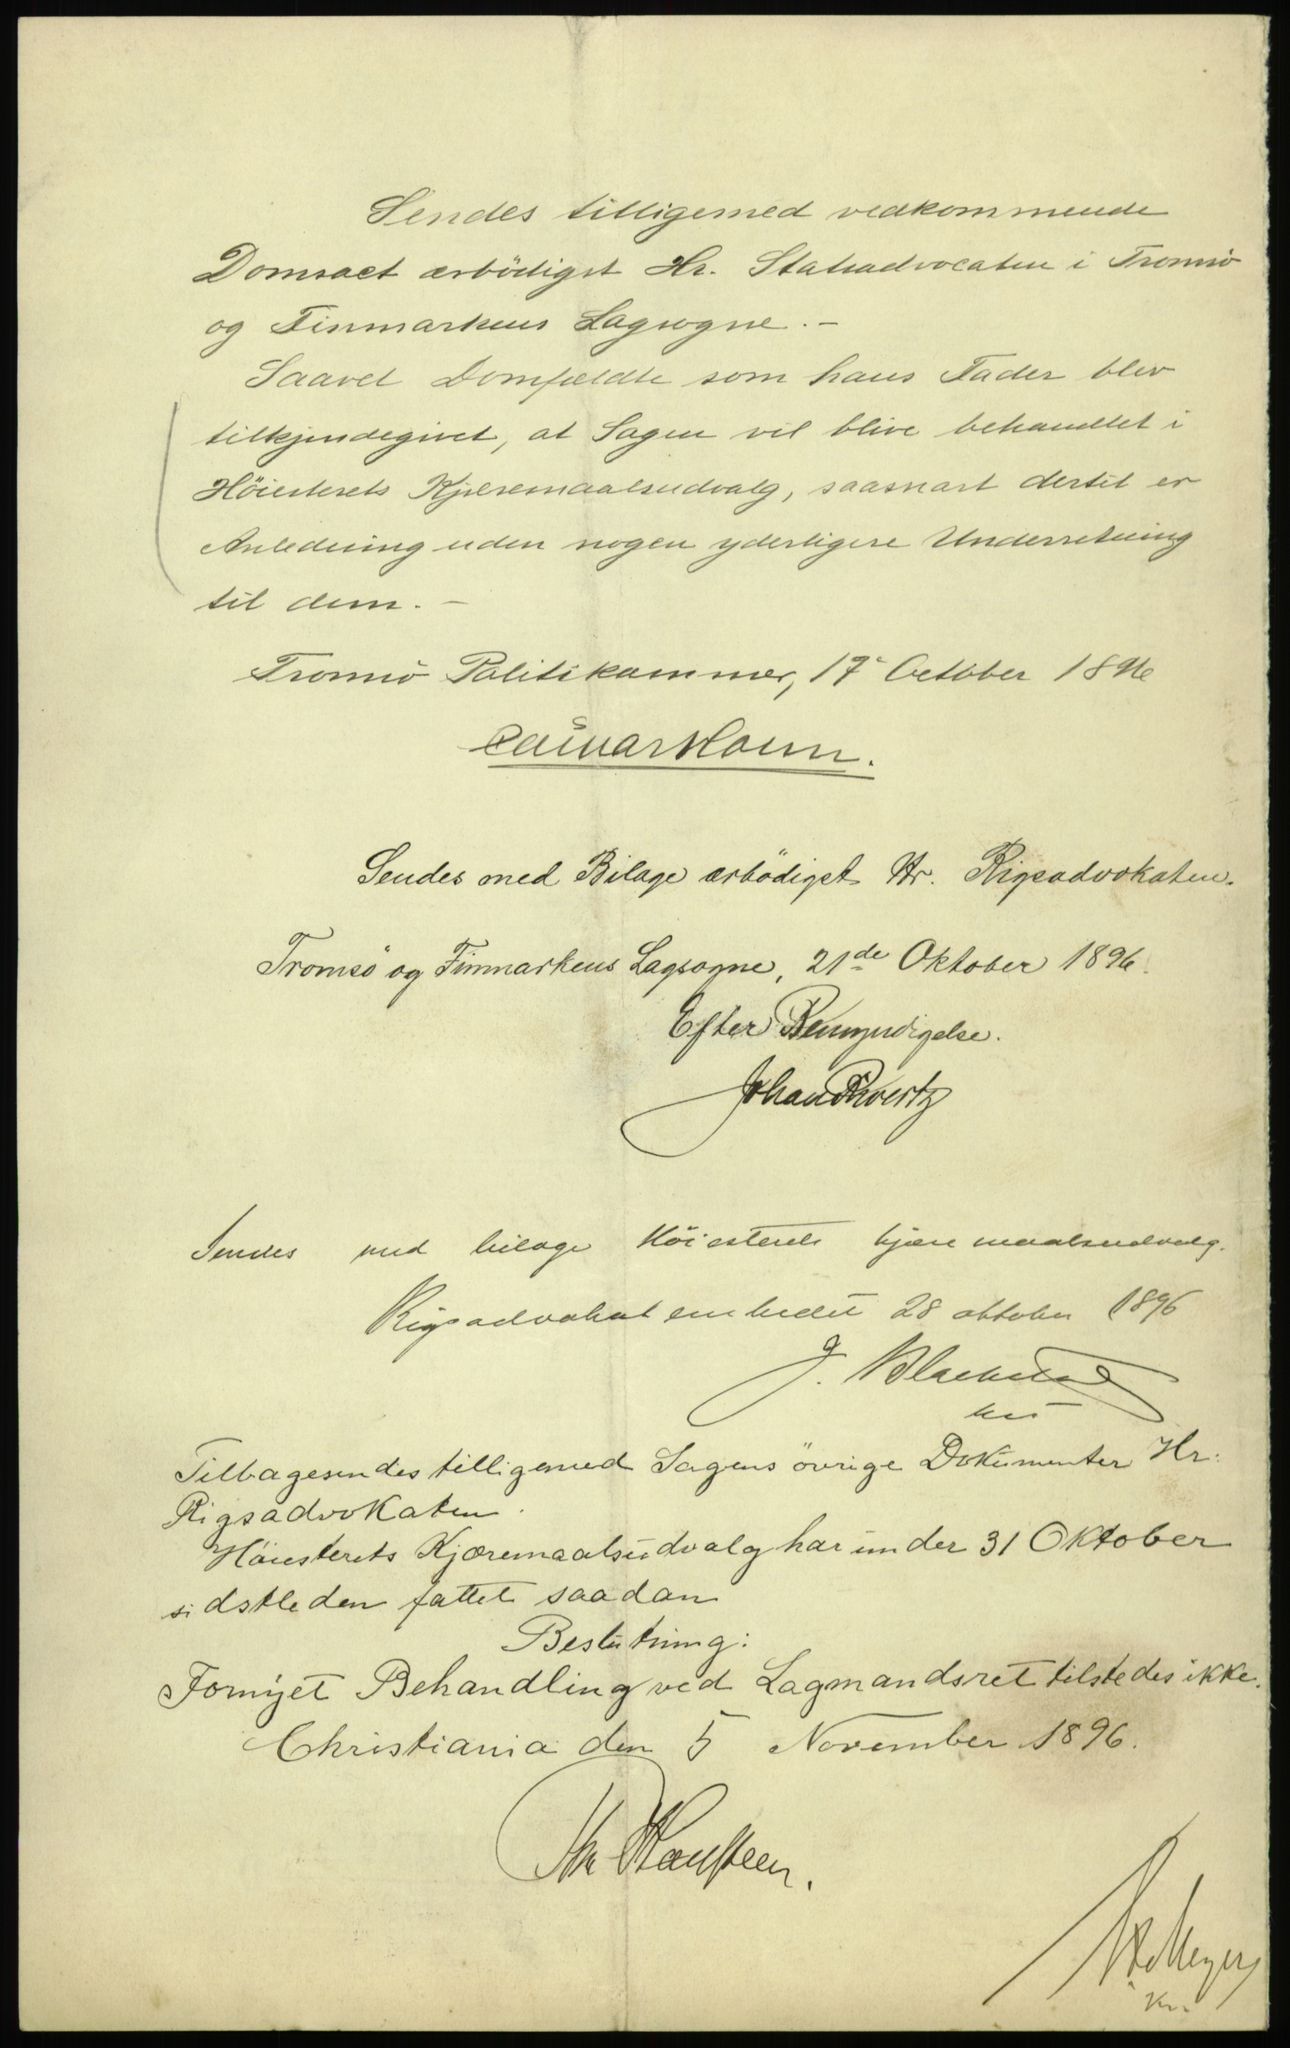 Sendes tilligemed vedkommende
Domsact ærbödigst Hr. Statsadvocaten i Tromsö
og Finmarkens Lagsogne. –
Saavel Domfældte som hans Fader blev
tilkjendegivet, at Sagen vil blive behandlet i
Höiesterets Kjæremaalsudvalg, saasnart dertil er
Anledning uden nogen yderligere Underretning
til dem. –
Tromsö Politikammer, 17 October 1896
Sendes med Bilage ærbödigst Hr. Rigsadvokaten.
Tromsö og Finmarkens Lagsogne, 21de Oktober 1896.
Efter Bemyndigelse.
Johan
Sendes med bilage Höiesterets kjæremaalsudvalg.
Rigsadvokatembedet 28 oktober 1896
J.
Tilbagesendes tilligemed Sagens övrige Dokumenter Hr.
Rigsadvokaten.
Höiesterets Kjæremaalsudvalg har under 31 Oktober
sidstleden fattet saadan
Beslutning:
Fornyet Behandling ved Lagmandsret tilstedes ikke.
Christiania den 5 November 1896.
Meyer